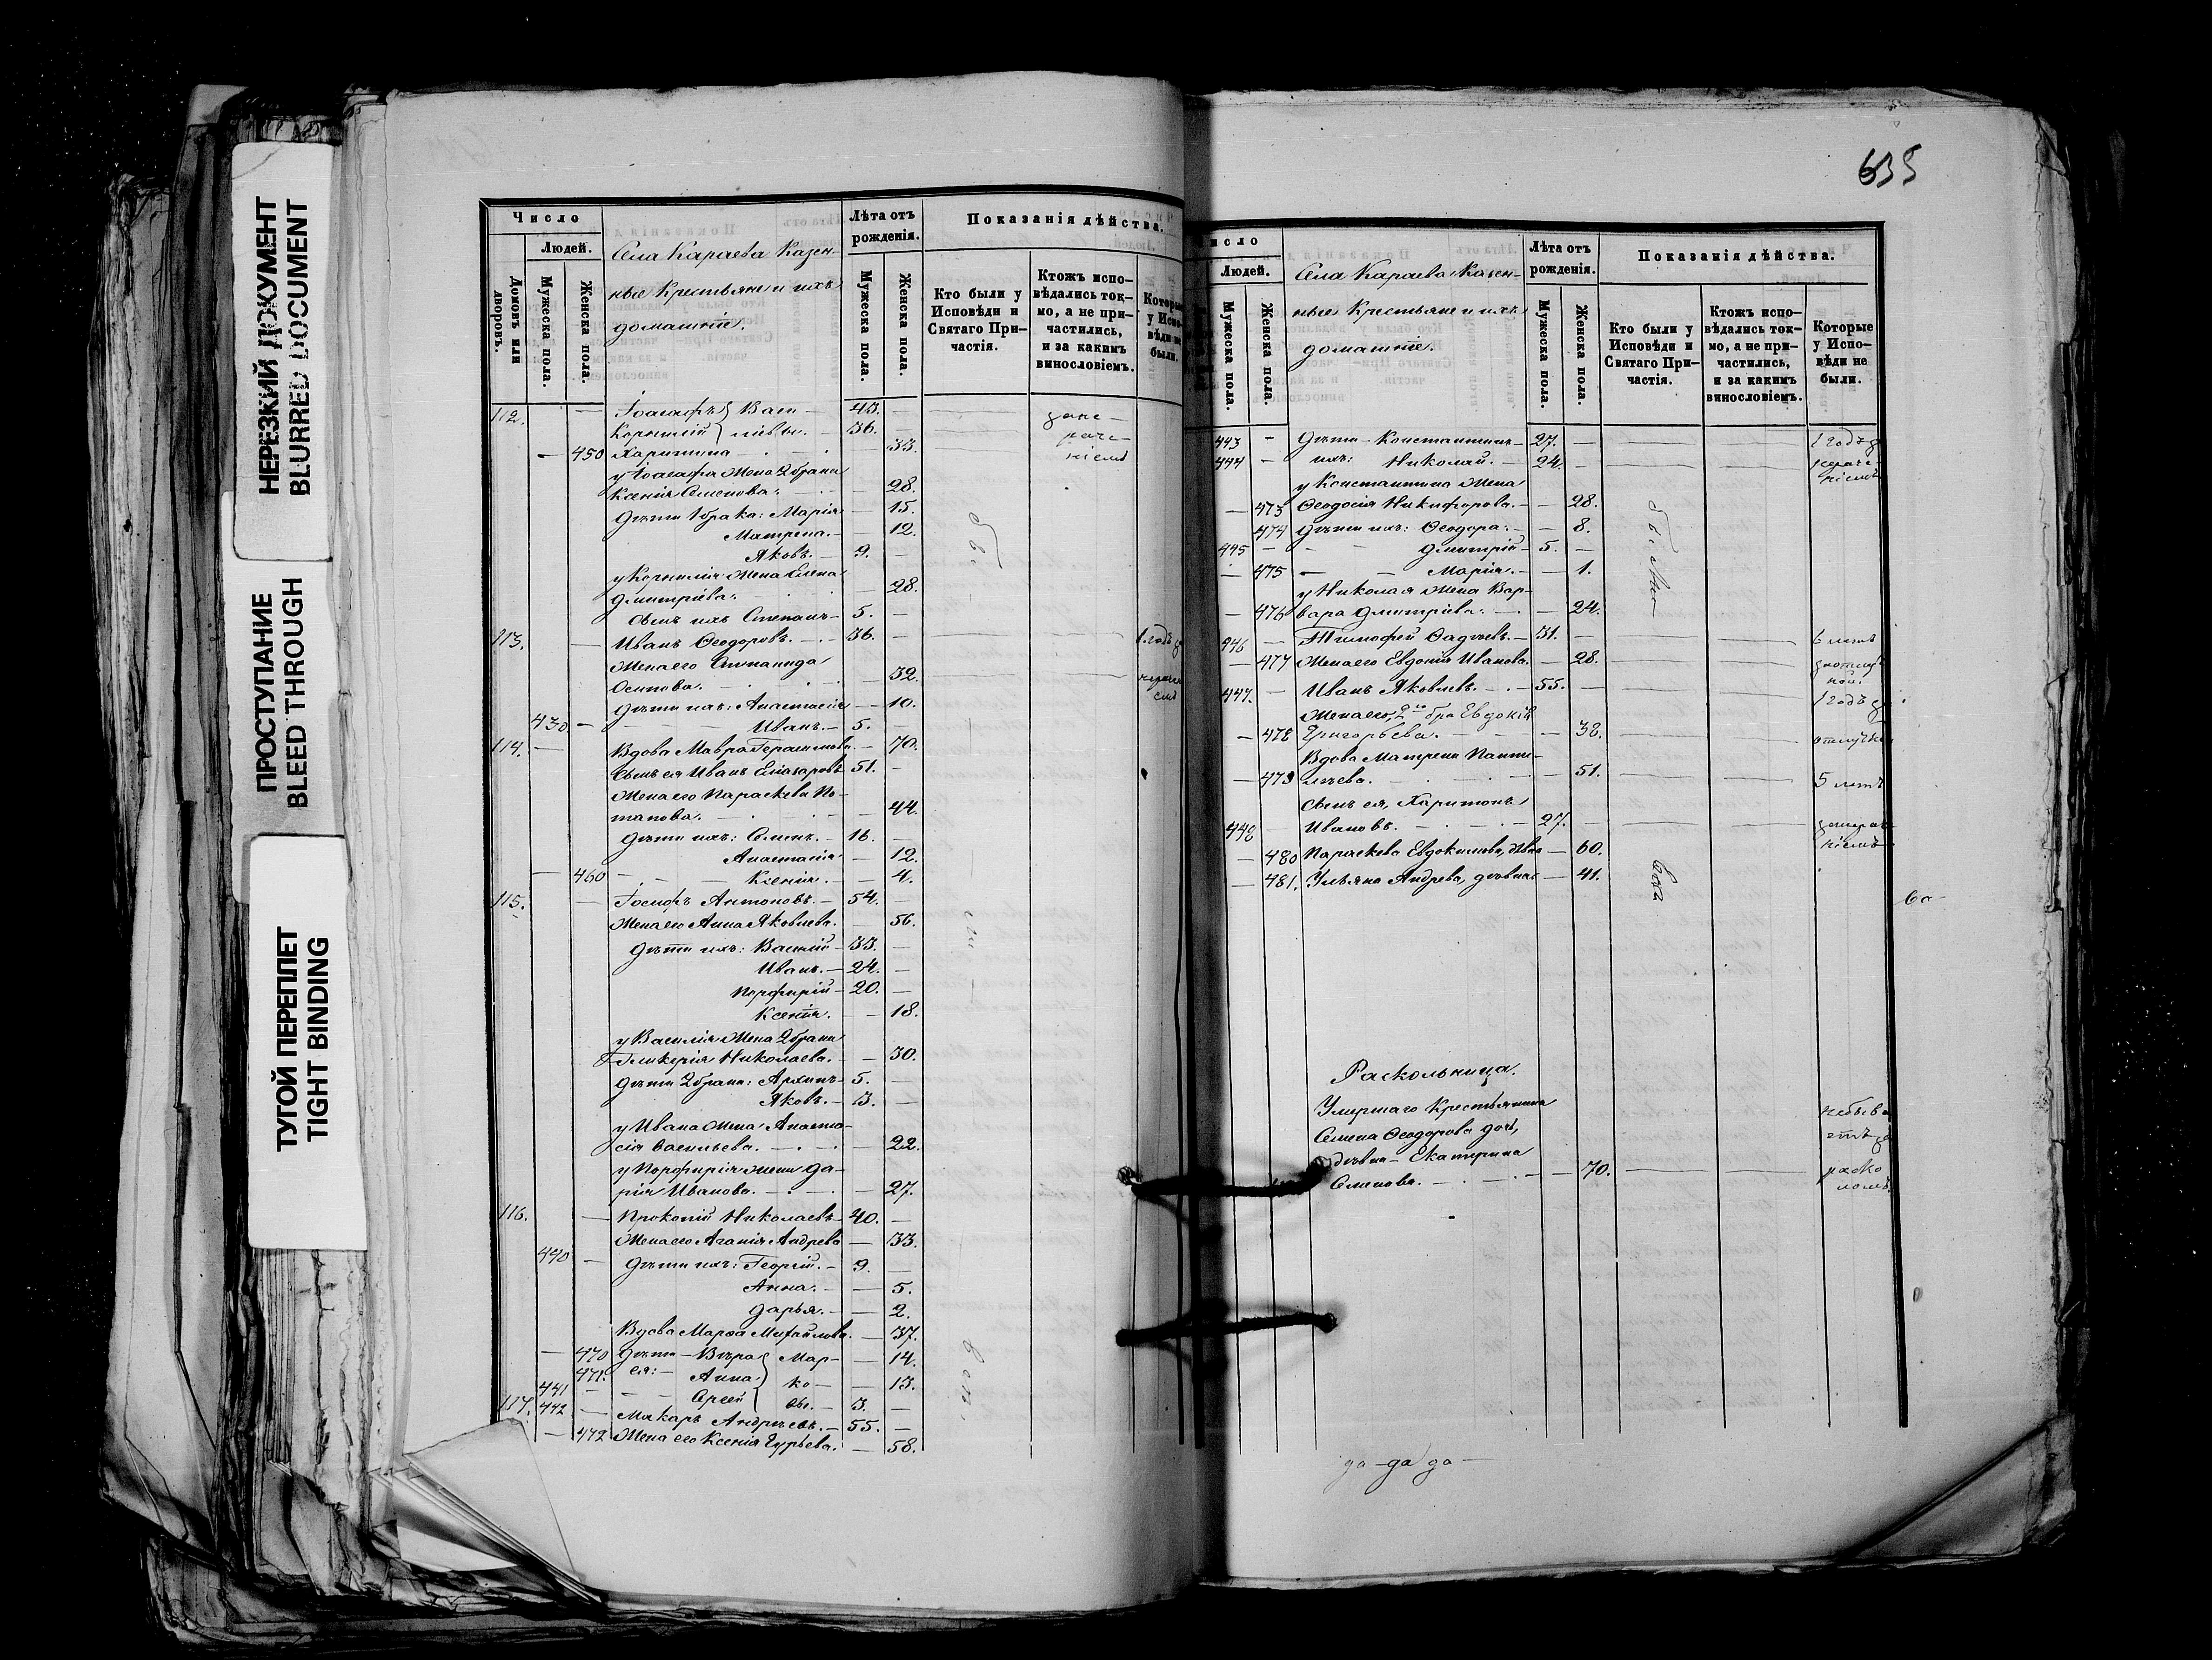 НЕРЕЗКИЙ ДОКУМЕНТ
BLURRED DOCUMENT
ПРОСТУПАНИЕ
BLEED THROUGH
ТУГОЙ ПЕРЕПЛЕТ
TIGHT BINDING
Число
Людей.
Домовъ или дворовъ.
Мужеска пола.
Женска пола.
Села Караева Казен-
ные Крестьяне и ихъ
домашніе.
Лѣта отъ рожденія.
Мужеска пола.
Женска пола.
Показанія дѣйства.
Кто были у Исповѣди и Святаго При-частія.
Ктожъ испо-вѣдались ток-мо, а не при-частились, и за какимъ винословіемъ.
Которые у Испо-вѣди не были.
112. — Іоасафъ Васи — 43.
Корнилій льевы. — 36.
— 450 Харитина — 33.
у Іоасафа Жена 2 брака
Ксенія Семенова. — 28.
Дѣти 1 брака: Марія — 15.
Матрена. — 12.
Яковъ. — 9. —
у Корнилія Жена Елена
Дмитріева. — 28.
Сынъ ихъ Степанъ — 5. —
113. — Иванъ Ѳеодоровъ. — 36. — 1 годъ
Жена его Степанида
Осипова. — 32.
Дѣти ихъ: Анастасія — 10.
430 — Иванъ. — 5.
114. — Вдова Мавра Герасимова. — 70.
Сынъ ея Иванъ Елеазаровъ 51. —
Жена его Параскева По-
тапова. — 44.
Дѣти ихъ: Семенъ. — 16. —
Анастасія — 12.
— 460 — Ксенія. — 4.
115. — Іосифъ Антоновъ. — 54. —
Жена его Анна Яковлева. 56.
Дѣти ихъ: Василій — 33. —
Иванъ. — 24. —
Порфирій — 20. —
Ксенія. — 18.
у Василія Жена 2 брака
Гликерія Николаева. — 30.
Дѣти 2 брака: Архипъ — 5. —
Яковъ. — 3. —
у Ивана Жена Анаста-
сія Васильева. — 22.
у Порфирія жена Да-
рія Иванова. — 27.
116. — Прокопій Николаевъ — 40. —
Жена его Агапія Андрева — 33.
440 — Дѣти ихъ: Георгій. — 9. —
Анна. — 5.
Дарья. — 2.
Вдова Марѳа Михайлова. — 37.
— 470 Дѣти — Вѣра Мар- — 14.
471. ея: — Анна ко — 13.
441 — Сергѣй вы. — 3. —
117. 442 — Макаръ Андреевъ. — 55. —
— 472 Жена его Ксенія Гурьева. — 58.
635
Число
Людей.
Мужеска пола.
Женска пола.
Села Караева Казен-
ные Крестьяне и ихъ
домашніе.
Лѣта отъ рожденія.
Мужеска пола.
Женска пола.
Показанія дѣйства.
Кто были у Исповѣди и Святаго При-частія.
Ктожъ испо-вѣдались ток-мо, а не при-частились, и за какимъ винословіемъ.
Которые у Испо-вѣди не были.
443 — Дѣти — Константинъ — 27. — 1 годъ
444 — ихъ: Николай. — 24. —
у Константина Жена
— 473 Ѳеодосія Никифорова. — 28.
474 Дѣти ихъ: Ѳеодора. — 8.
445 — Дмитрій — 5. —
— 475 — Марія. — 1.
у Николая Жена Вар-
— 476 вара Дмитріева. — 24.
были
446 — Тимофей Фадѣевъ. — 31. — 6 летъ
— 477 Жена его Евдокія Иванова. — 28.
447. — Иванъ Яковлевъ. — 55. — 1 годъ
Жена его, 2го бра Евдокія
— 478 Григорьева. — 38.
Вдова Матрена Панте-
— 479 лѣева. — 51. 5 летъ
Сынъ ея, Харитонъ
448 Ивановъ. — 27.
— 480 Параскева Евдокимова, дѣвка — 60.
— 481. Ульяна Андрева, дѣвка — 41.
Раскольница.
Умершаго Крестьянина
Семена Ѳеодорова дочь,
дѣвка — Екатерина
Семенова. — 70.
небыва
етъ за
раско
ломъ.
да — да да —